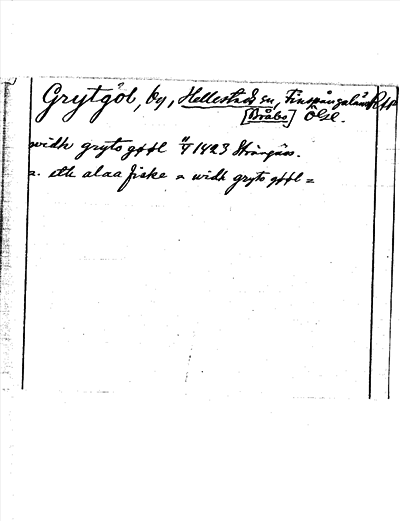 Grytgöl, by, Hellestads sn, Finspångaläns
[Bråbo] Ögl.
widh gryts gøøl 4/7 1423 Strängnäs.
=. eth alaa fiske = widh gryts gøøl =